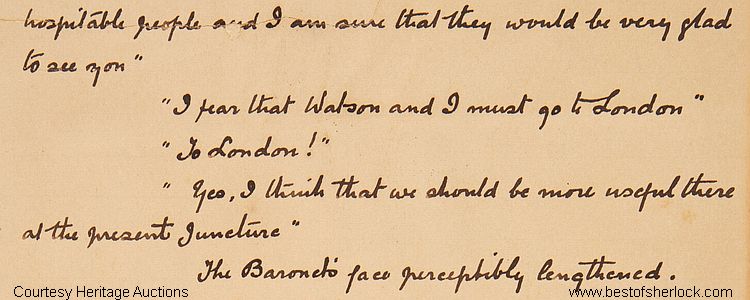 hospitable people and I am sure that they would be very glad
to see you"
"I fear that Watson and I must go to London"
"To London!"
"Yes, I think that we should be more useful there
at the present juncture"
The Baronet's face perceptibly lengthened.
Courtesy Heritage Auctions
www.bestofsherlock.com